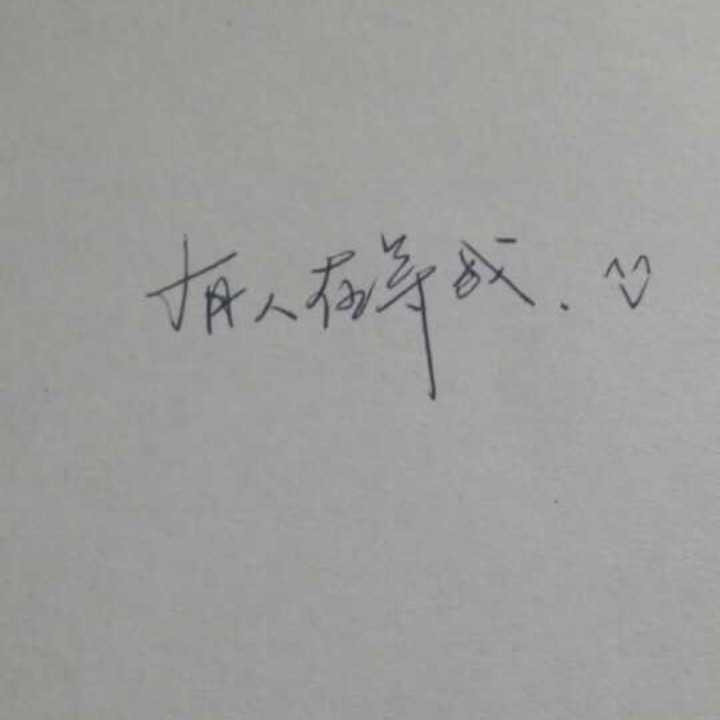 有人在等我.